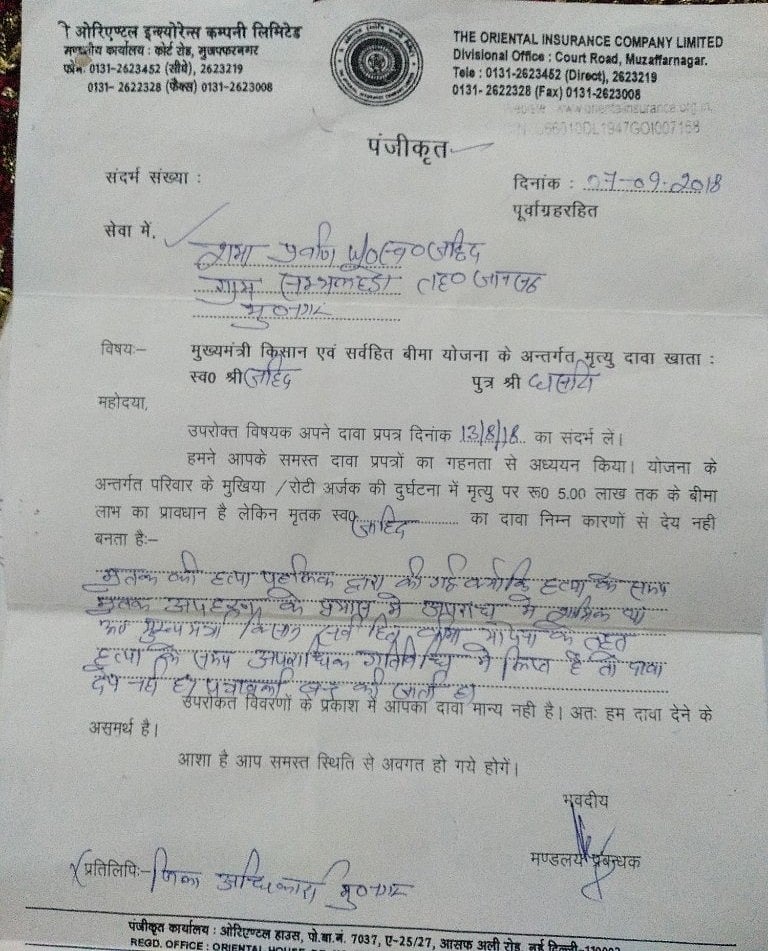 दि ओरिएण्टल इन्श्योरेन्स कम्पनी लिमिटेड
मण्डलीय कार्यालय : कोर्ट रोड, मुजफ्फरनगर
फोन: 0131-2623452 (सीधे), 2623219
0131- 2622328 (फैक्स) 0131-2623008
THE ORIENTAL INSURANCE COMPANY LIMITED
Divisional Office : Court Road, Muzaffarnagar.
Tele : 0131-2623452 (Direct), 2623219
0131- 2622328 (Fax) 0131-2623008
Website www.orientalinsurance.org.in
U66010DL1947GOI007158
पंजीकृत
संदर्भ संख्या :
दिनांक : 07-09-2018
पूर्वाग्रहरहित
सेवा में,
शमा W/o स्व० जाहिद
ग्राम तह० जानसठ
मु०नगर
विषयः- मुख्यमंत्री किसान एवं सर्वहित बीमा योजना के अन्तर्गत मृत्यु दावा खाता :
स्व0 श्री जाहिद पुत्र श्री
महोदया,
उपरोक्त विषयक अपने दावा प्रपत्र दिनांक 13/8/18 का संदर्भ लें।
हमने आपके समस्त दावा प्रपत्रों का गहनता से अध्ययन किया। योजना के
अन्तर्गत परिवार के मुखिया /रोटी अर्जक की दुर्घटना में मृत्यु पर रू0 5.00 लाख तक के बीमा
लाभ का प्रावधान है लेकिन मृतक स्व0 जाहिद का दावा निम्न कारणों से देय नही
बनता हैः-
मृतक की हत्या द्वारा की गई क्योंकि हत्या के समय
मृतक अपहरण के प्रयास में अपराध में शामिल था
अतः मुख्यमंत्री किसान सर्वहित बीमा योजना के तहत
हत्या के समय अपराधिक गतिविधि में लिप्त है तो दावा
देय नहीं है। पत्रावली बन्द की जाती है।
उपरोक्त विवरणों के प्रकाश में आपका दावा मान्य नही है। अतः हम दावा देने के
असमर्थ है।
आशा है आप समस्त स्थिति से अवगत हो गये होगें।
भवदीय
मण्डलीय प्रबन्धक
प्रतिलिपिः- जिला अधिकारी मु०नगर
पंजीकृत कार्यालय : ओरिएण्टल हाउस, पो.बा.नं. 7037, ए-25/27, आसफ अली रोड, नई दिल्ली-110002
REGD. OFFICE : ORIENTAL HOUSE